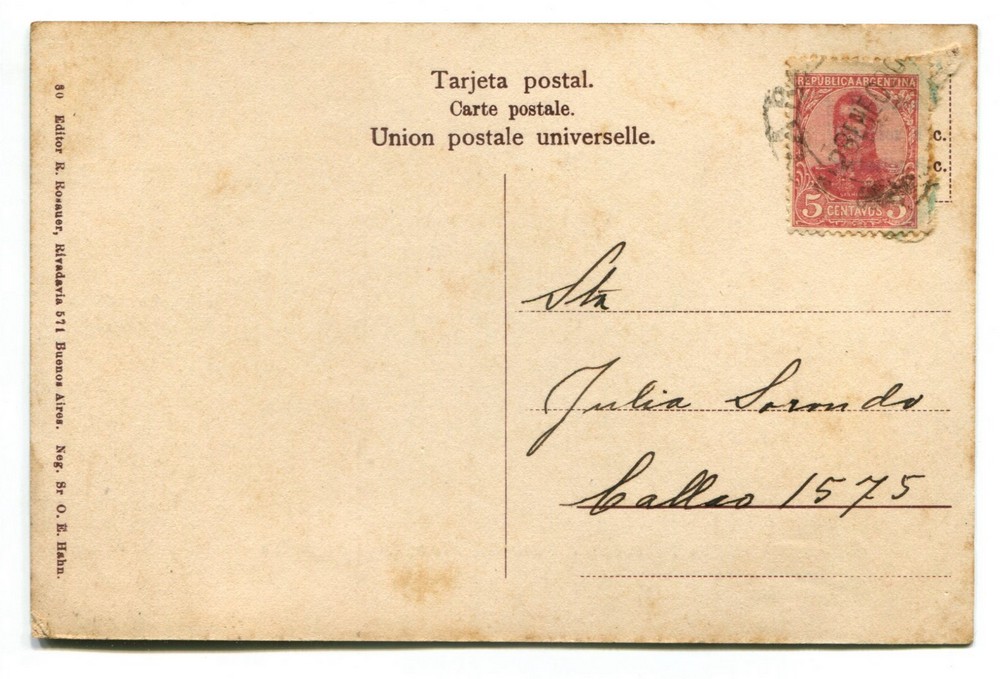 Tarjeta postal.
Carte postale.
Union postale universelle.
REPÚBLICA ARGENTINA
5 CENTAVOS 5
c.
c.
Sta
Julia Sorondo
Callao 1575
80 Editor R. Rosauer, Rivadavia 571 Buenos Aires. Neg. Sr O. E. Hahn.